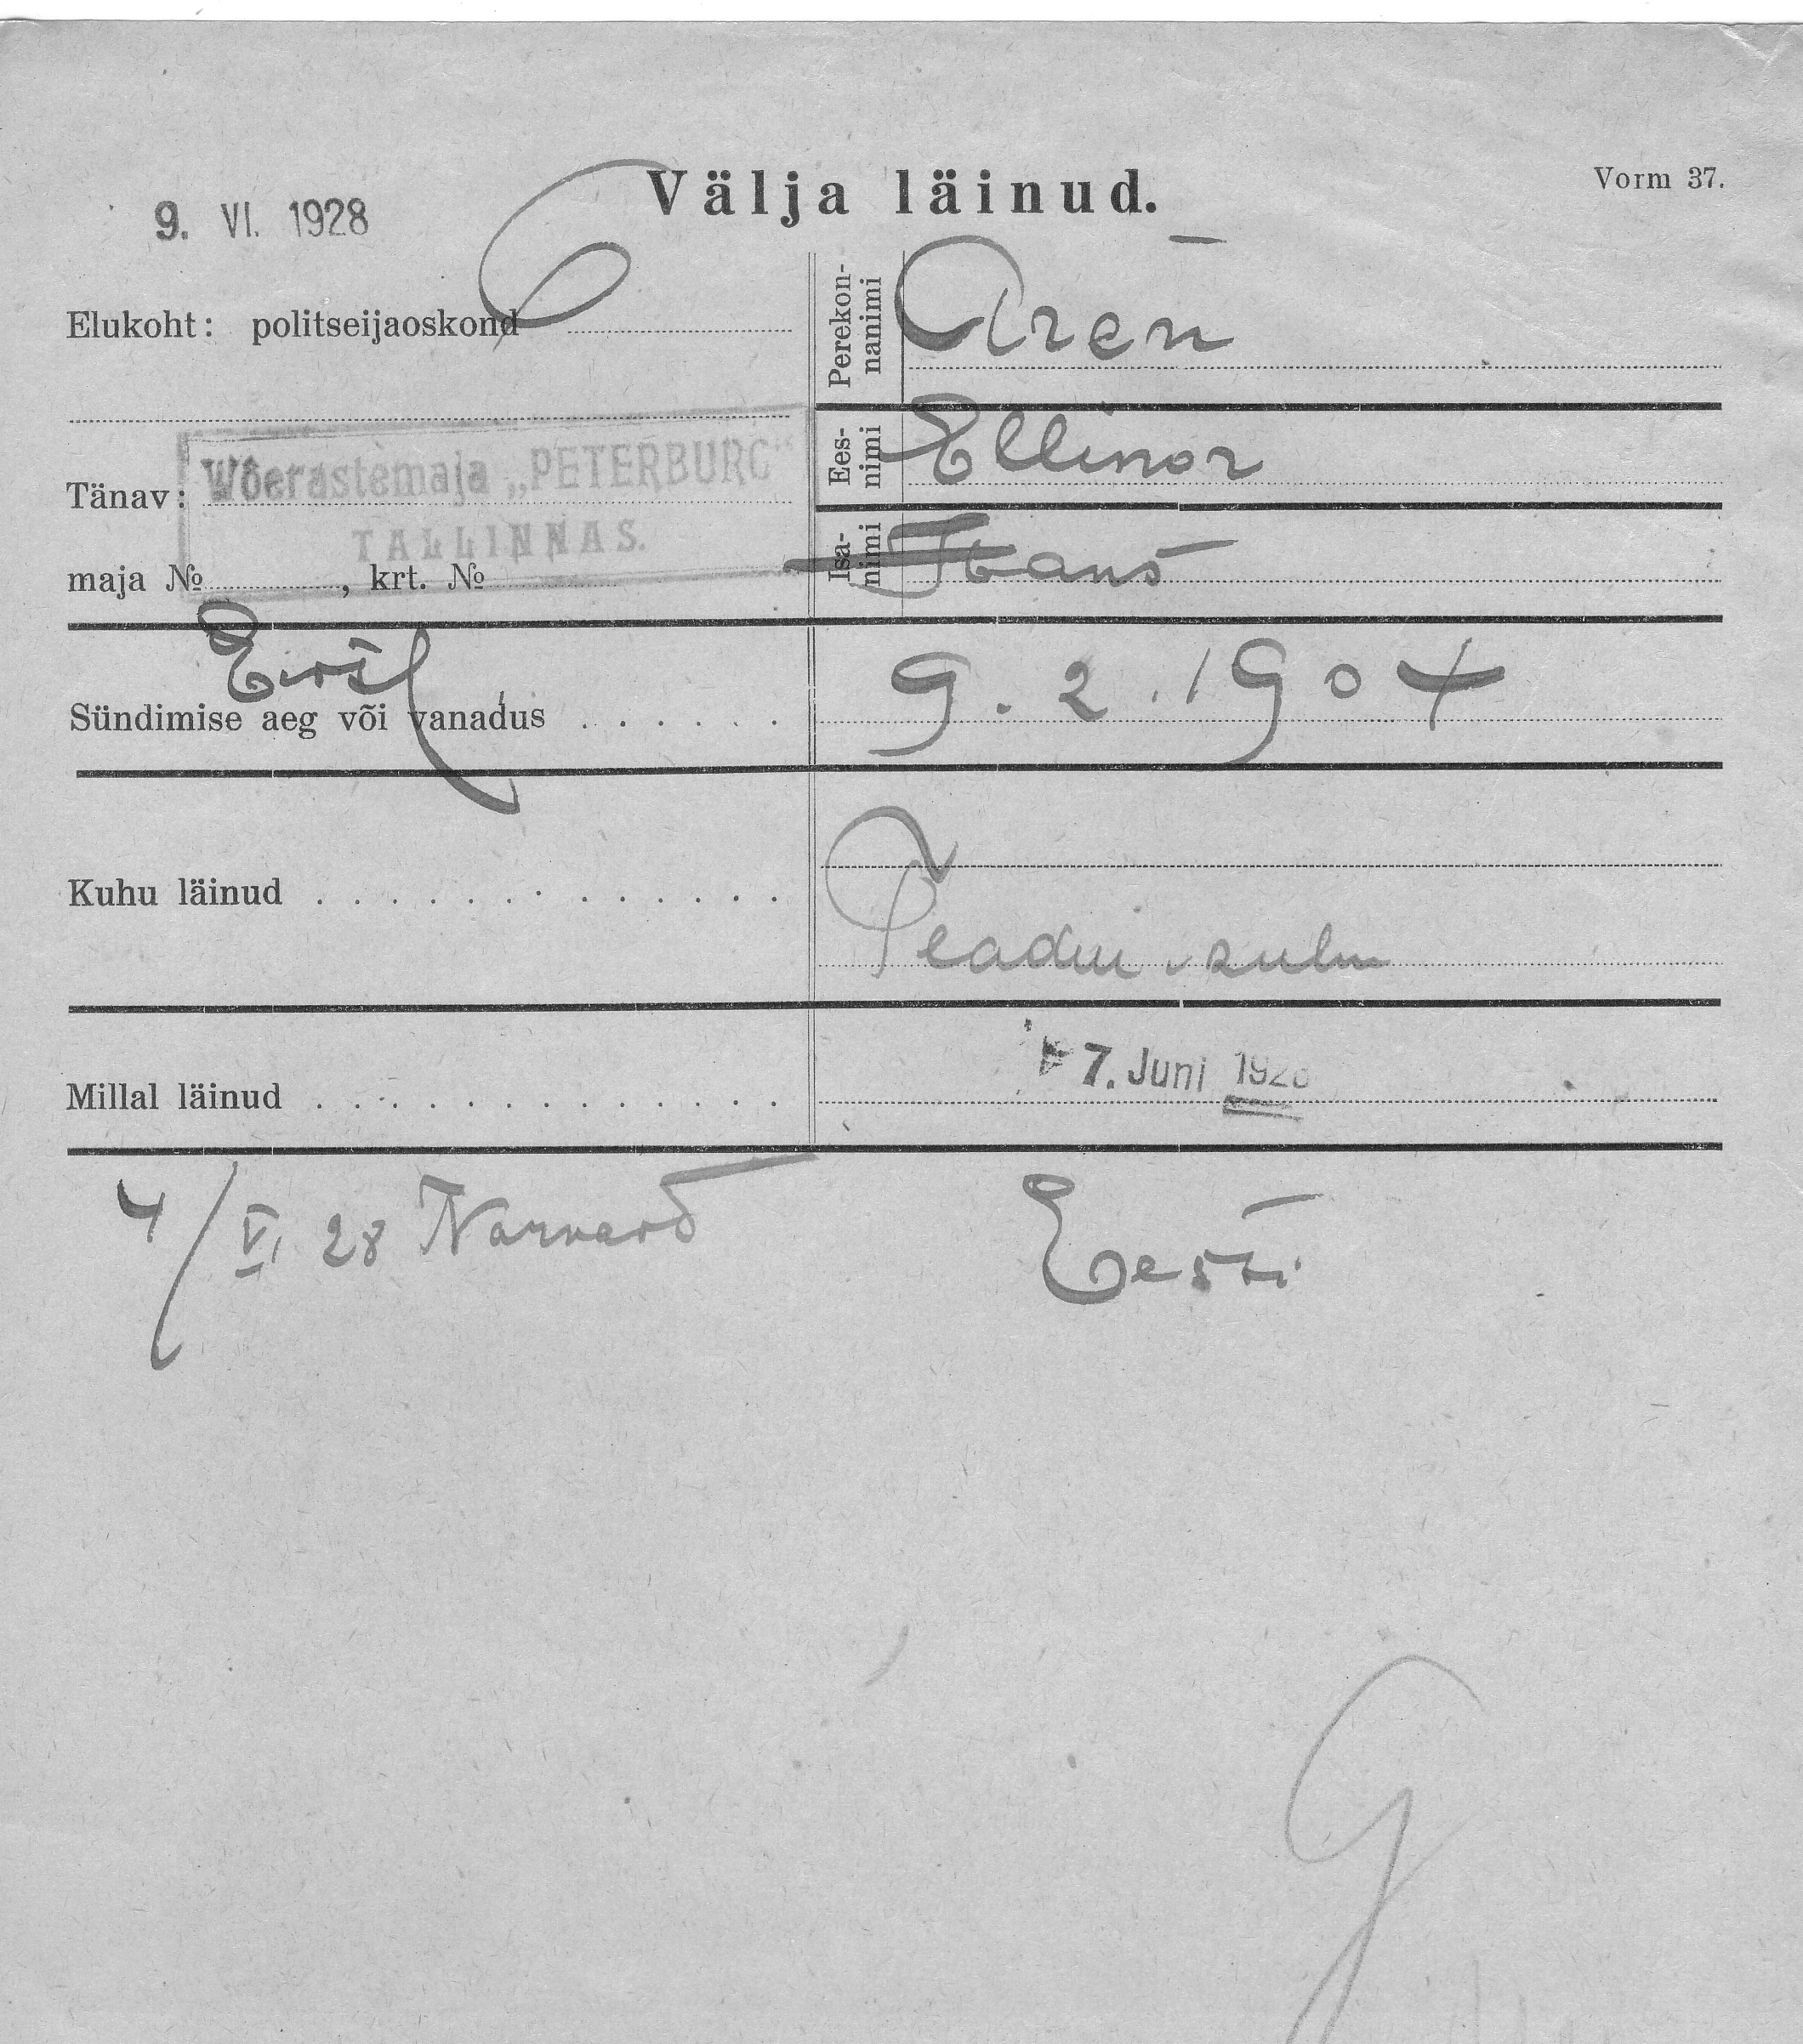 Välja läinud.
Vorm 37.
9. VI. 1928
Elukoht: politseijaoskond
Perekon-
nanimi
Aren
Ees-
nimi
Ellinor
Tänav:
Wõerastemaja „PETERBURG“
TALLINNAS.
Isa-
nimi
maja №, krt. №
Sündimise aeg või vanadus
9. 2. 1904
Kuhu läinud
Millal läinud
7. Juni 1928
4/VI 28 Narvast
Eesti